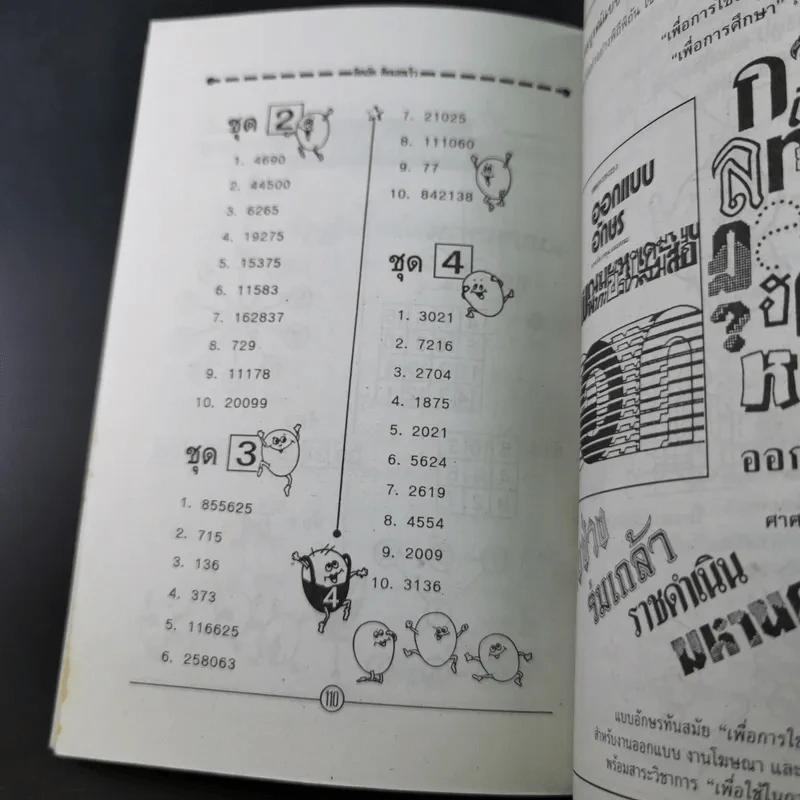 คิดลัด คิดเลขเร็ว
ชุด 2
1. 4690
2. 44500
3. 6265
4. 19275
5. 15375
6. 11583
7. 162837
8. 729
9. 11178
10. 20099
ชุด 3
1. 855625
2. 715
3. 136
4. 373
5. 116625
6. 258063
7. 21025
8. 111060
9. 77
10. 842138
ชุด 4
1. 3021
2. 7216
3. 2704
4. 1875
5. 2021
6. 5624
7. 2619
8. 4554
9. 2009
10. 3136
4
110
"เพื่อการใช้
"เพื่อการศึกษา"
ออกแบบ
อักษร
?
ออก
ศาศ
ร่มเกล้า
ราชดำเนิน
มหาน
แบบอักษรทันสมัย "เพื่อการใช้
สำหรับงานออกแบบ งานโฆษณา และ
พร้อมสาระวิชาการ "เพื่อใช้ในกา